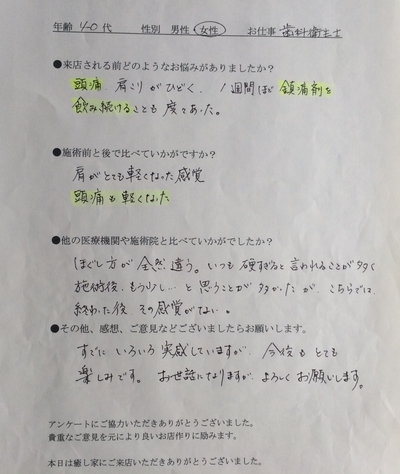 年齢 40代 性別 男性 女性 お仕事 歯科衛生士
●来店される前どのようなお悩みがありましたか?
頭痛、肩こりがひどく、1週間ほど鎮痛剤を
飲み続けることも度々あった。
●施術前と後で比べていかがですか?
肩がとても軽くなった感覚
頭痛も軽くなった
●他の医療機関や施術院と比べていかがでしたか?
ほぐし方が全然違う。いつも硬すぎると言われることが多く
施術後、もう少し…と思うことが多かったが、こちらでは、
終わった後、その感覚がない。
●その他、感想、ご意見などございましたらお願いします。
すでにいろいろ実感していますが、今後もとても
楽しみです。お世話になりますが、よろしくお願いします。
アンケートにご協力いただきありがとうございました。
貴重なご意見を元により良いお店作りに励みます。
本日は癒し家にご来店いただきありがとうございました。